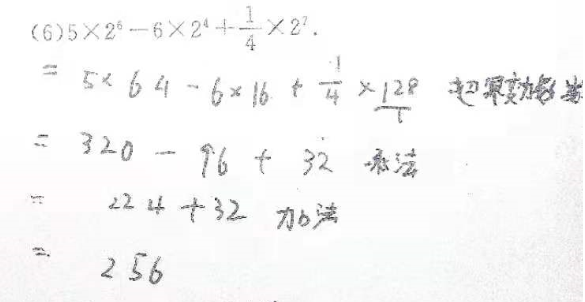 (6)5×2⁶−6×2⁴+1/4×2⁷.
= 5×64-6×16+1/4×128/1 把幂
= 320-96+32 乘法
= 224+32 加法
= 256